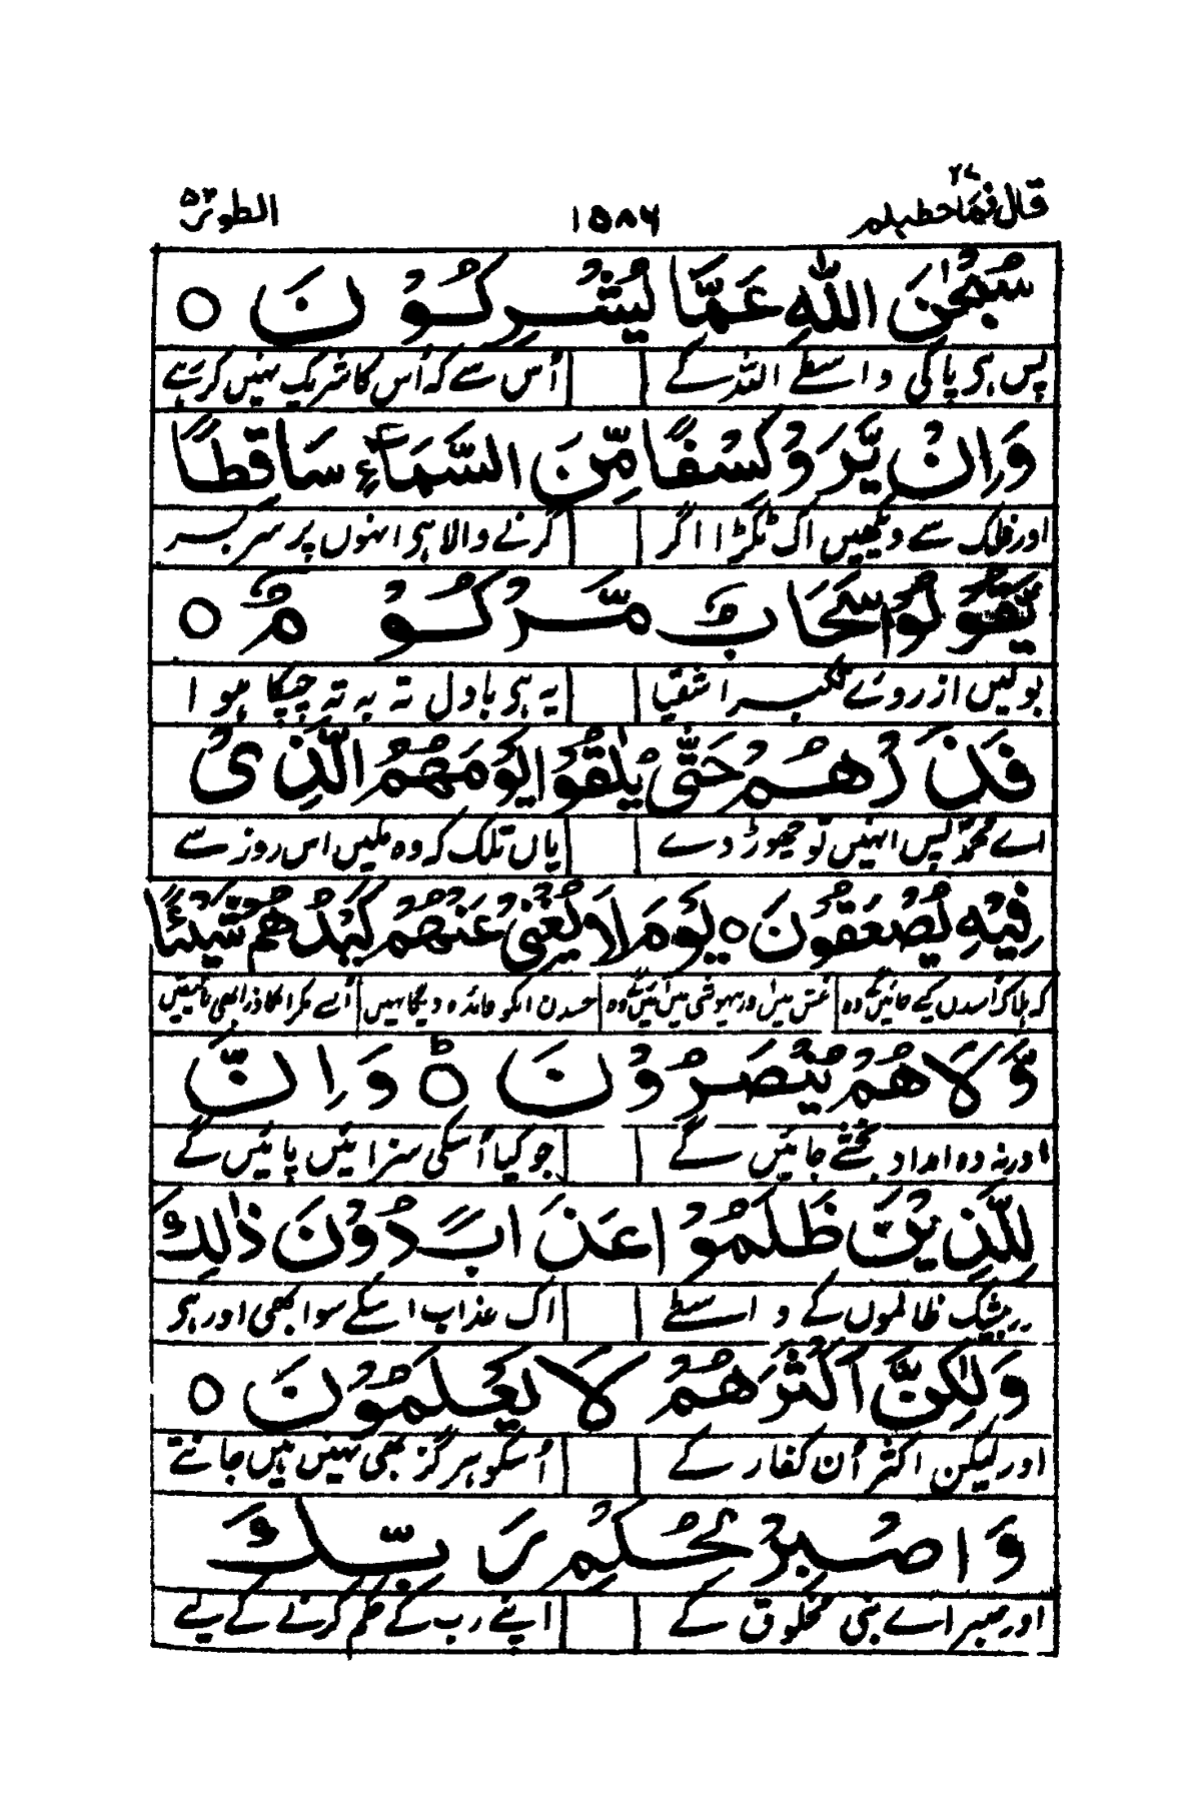 قال فما خطبکم ۲۷ ۱۵۸۶ الطور ۵۲
سُبْحٰنَ اللّٰهِ عَمَّا يُشْرِكُوْنَ ○
پس ہے پاکی واسطے اللہ کے اُس سے کہ اُس کا شریک ہیں کر رہے
وَاِنْ يَّرَوْ كِسْفًا مِّنَ السَّمَآءِ سَاقِطًا
اور فلک سے دیکھیں اک ٹکڑا اگر گرنے والا ہے انہوں پر سر بسر
يَّقُوْلُوْا سَحَابٌ مَّرْكُوْمٌ ○
بولیں از روئے تکبر اشقیا یہ ہے بادل تہ بہ تہ چپکا ہوا
فَذَرْهُمْ حَتّٰى يُلٰقُوْا يَوْمَهُمُ الَّذِىْ
اے محمدؐ پس انہیں تو چھوڑ دے یاں تلک کہ وہ ملیں اس روز سے
فِيْهِ يُصْعَقُوْنَ ○ يَوْمَ لَا يُغْنِىْ عَنْهُمْ كَيْدُهُمْ شَيْئًا
کہ ہلاک اُسدن کیے جائیں گے وہ غش میں اور بیہوشی میں آئیں گے وہ جسدن انکو فائدہ دیگا نہیں اُنکے مکر انکا ذرا بھی
وَّلَا هُمْ يُنْصَرُوْنَ ○ؕ وَاِنَّ
اور نہ وہ امداد بخشے جائیں گے جو کیا اُسکی سزائیں پائیں گے
لِلَّذِيْنَ ظَلَمُوْا عَذَابًا دُوْنَ ذٰلِكَ
بیشک ظالموں کے واسطے اک عذاب اسکے سوا بھی اور ہے
وَلٰكِنَّ اَكْثَرَهُمْ لَا يَعْلَمُوْنَ ○
اور لیکن اکثر اُن کفار کے اُسکو ہرگز بھی نہیں ہیں جانتے
وَاصْبِرْ لِحُكْمِ رَبِّكَ
اور صبر اے نبی مخلوق کے اپنے رب کے حکم کرنے کے لیے